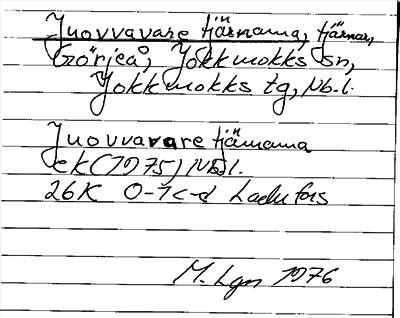 Juovvavare tjärnarna, tjärnar,
Görjeå, Jokkmokks sn,
Jokkmokks tg, Nb.l.
Juovvavare tjärnarna
ek (1975) Nb.l.
26K 0-1 c-d Ladufors
M. Lgn 1976